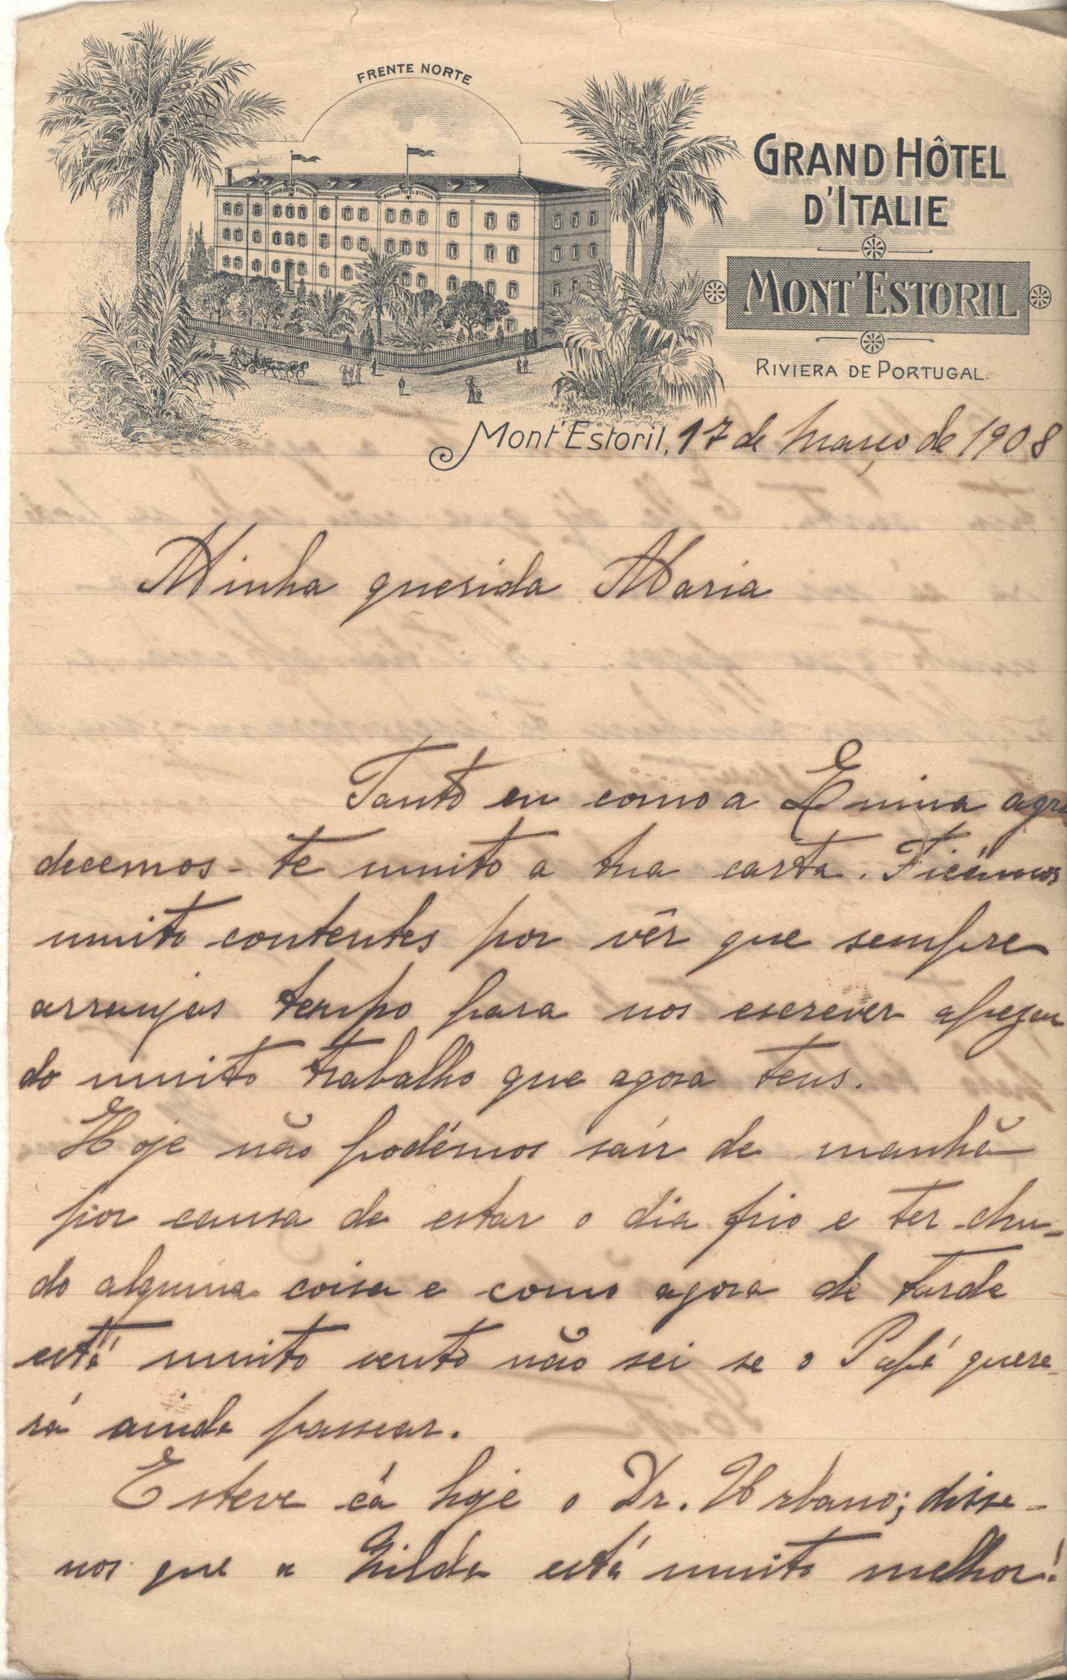 FRENTE NORTE
GRAND HÔTEL
D'ITALIE
MONT'ESTORIL
RIVIERA DE PORTUGAL.
Mont'Estoril, 17 de Março de 1908
Minha querida Maria
Tanto eu como a Emma agra
decemos-te muito a tua carta. Ficámos
muito contentes por vêr que sempre
arranjas tempo para nos escrever apezar
do muito trabalho que agora tens.
Hoje não podémos sair de manhã
por causa de estar o dia frio e ter chu-
do alguma coisa e como agora de tarde
está muito vento não sei se o Papá quere-
rá ainda passear.
Esteve cá hoje o Dr. Urbano; disse-
nos que a Gilda está muito melhor!